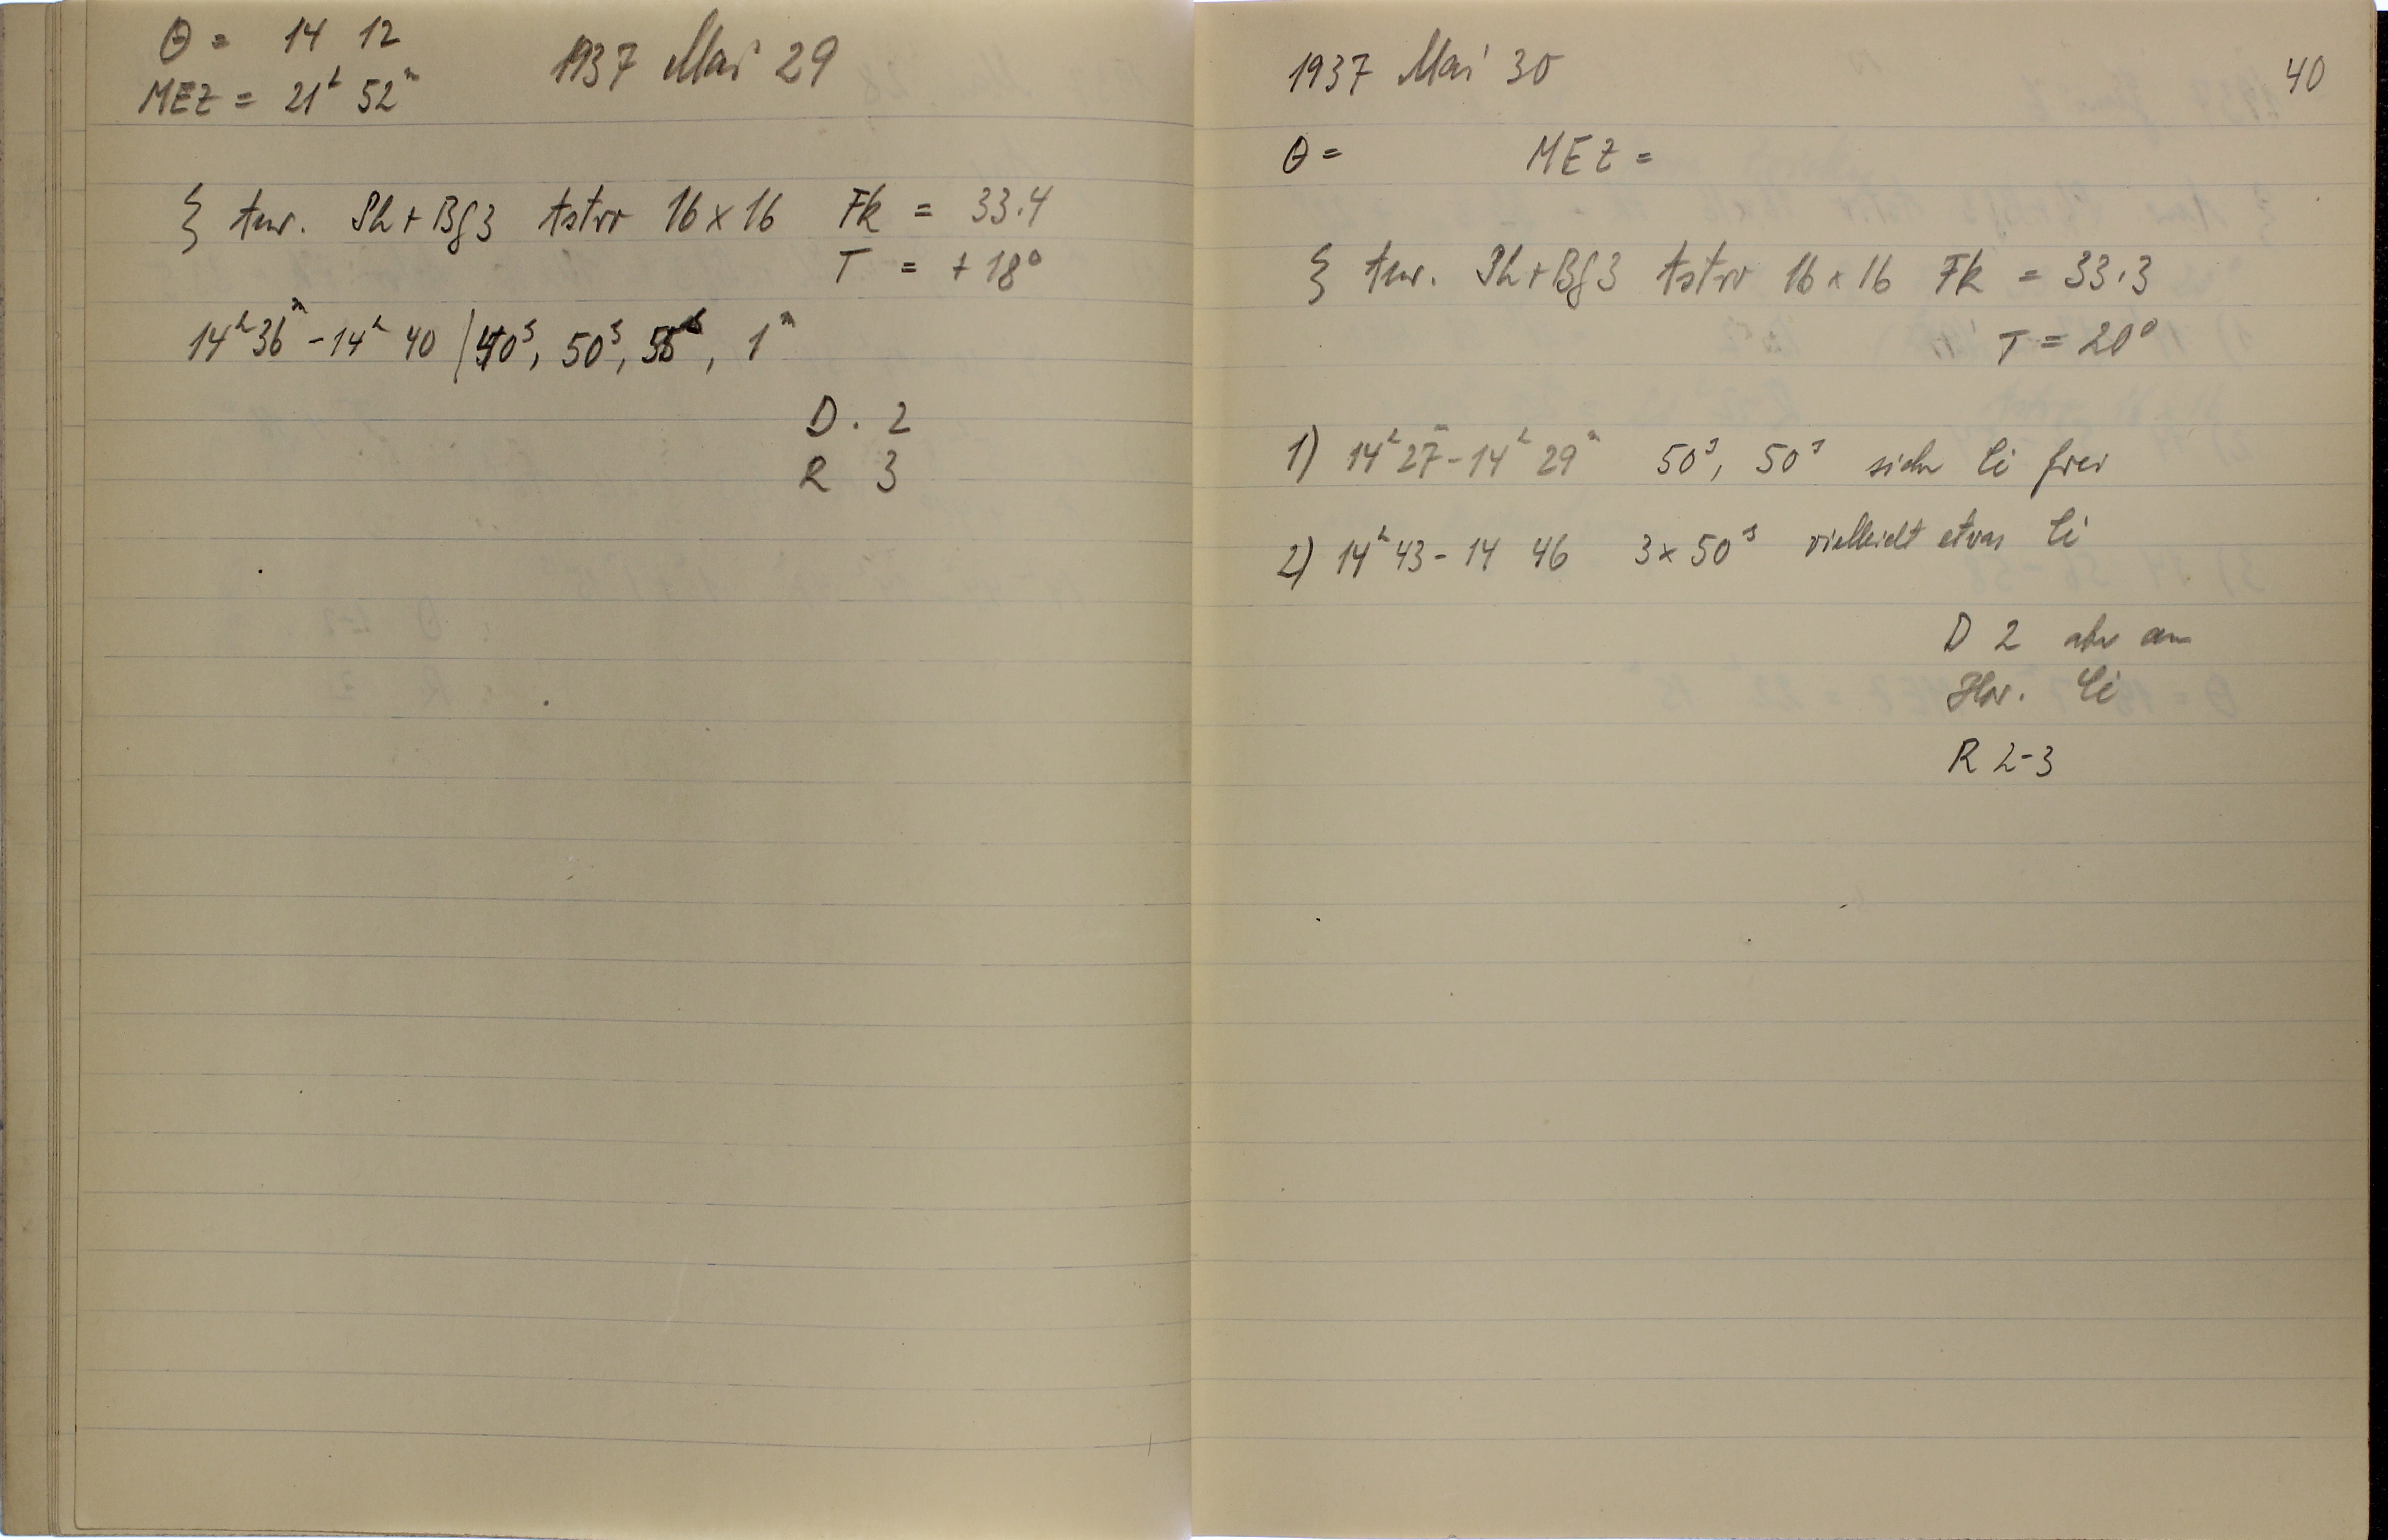 θ = 14 12
MEZ = 21ʰ 52ᵐ
1937 Mai 29
ξ Aur. Ph + BG3 Astro 16 x 16 Fk = 33.4
T = + 18°
14ʰ 36ᵐ - 14ʰ 40 / 40ˢ, 50ˢ, 55ˢ, 1ᵐ
D. 2
R 3
40
1937 Mai 30
θ = MEZ =
ξ Aur. Ph + BG3 Astro 16 x 16 Fk = 33.3
T = 20°
1) 14ʰ 27ᵐ - 14ʰ 29ᵐ 50ˢ, 50ˢ sicher Ci frei
2) 14ʰ 43 - 14 46 3 x 50ˢ vielleicht etwas Ci
D 2 aber am
Hor. Ci
R 2-3